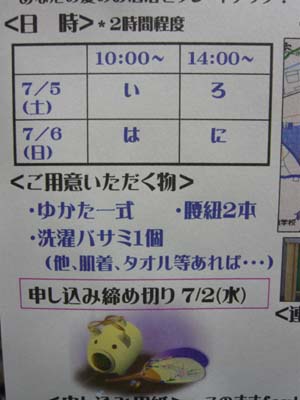 <日　時>*2時間程度
10:00～　14:00～
7/5(土)　い　ろ
7/6(日)　は　に
<ご用意いただく物>
・ゆかた一式　・腰紐2本
・洗濯バサミ1個
(他、肌着、タオル等あれば・・・)
申し込み締め切り 7/2(水)